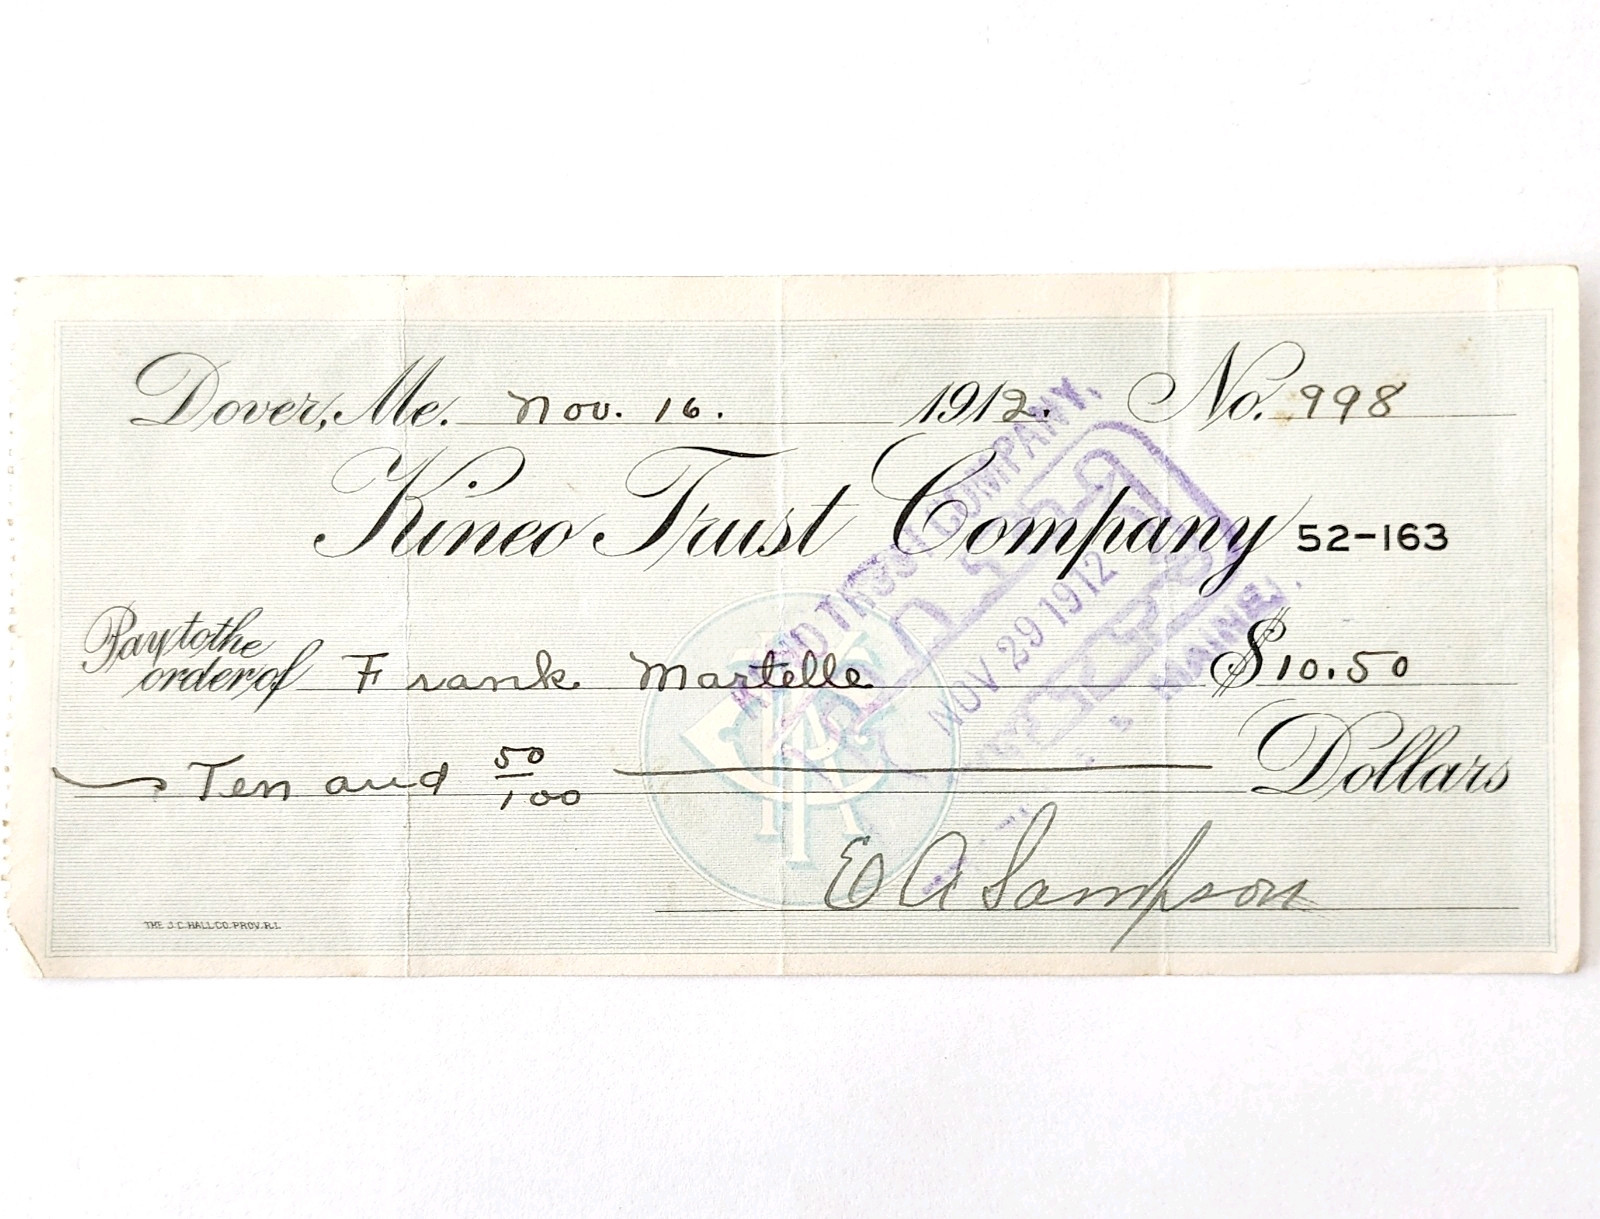 Dover, Me. Nov. 16. 1912. No. 998
Kineo Trust Company 52-163
Pay to the
order of Frank Martelle $10.50
Ten and 50/100 Dollars
E A Sampson
THE J.C. HALL CO. PROV. R.I.
TRUST COMPANY,
PAID
NOV 29 1912
MAINE.
KTC